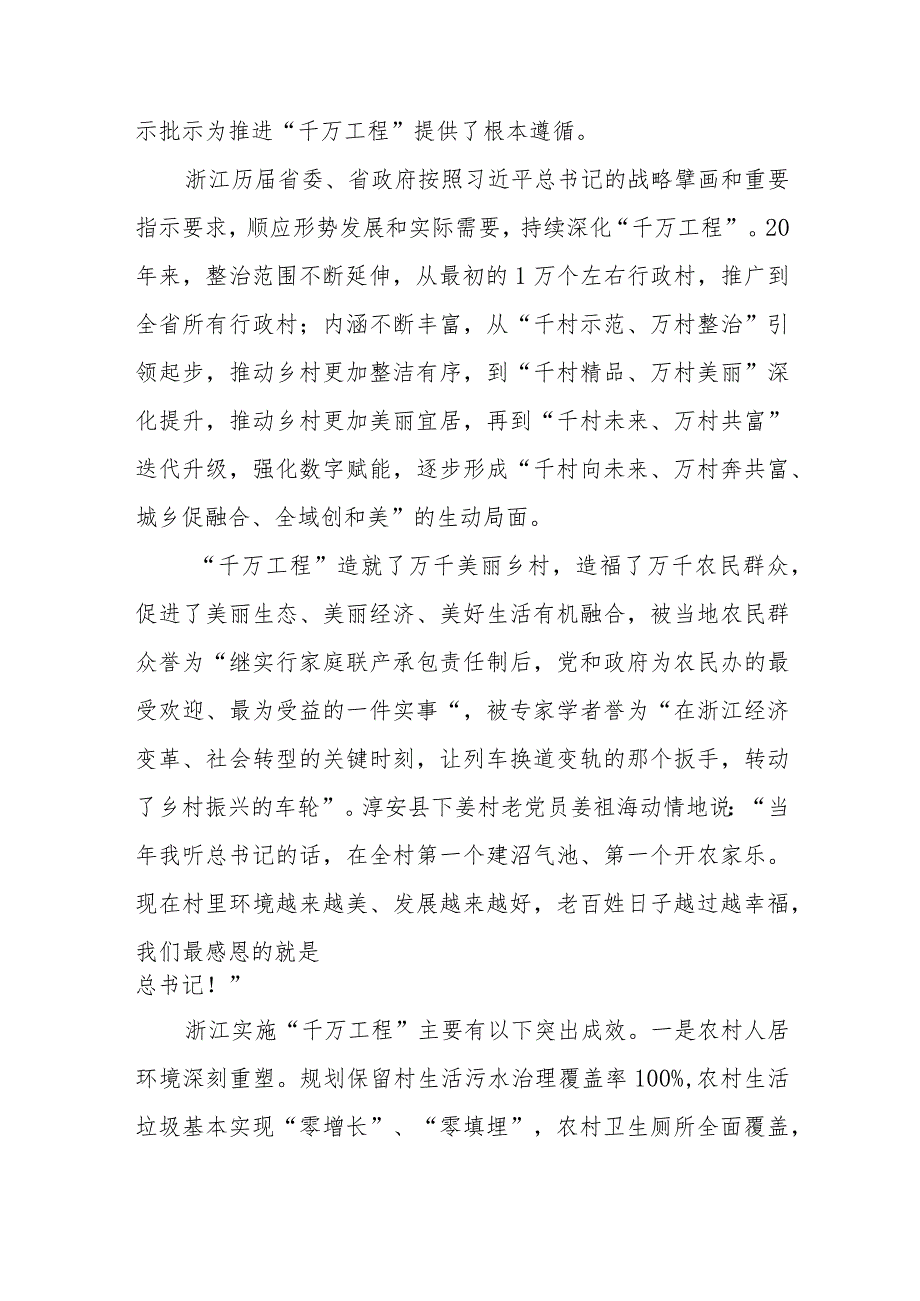 示批示为推进“千万工程”提供了根本遵循。
浙江历届省委、省政府按照习近平总书记的战略擘画和重要
指示要求，顺应形势发展和实际需要，持续深化“千万工程”。20
年来，整治范围不断延伸，从最初的1万个左右行政村，推广到
全省所有行政村；内涵不断丰富，从“千村示范、万村整治”引
领起步，推动乡村更加整洁有序，到“千村精品、万村美丽”深
化提升，推动乡村更加美丽宜居，再到“千村未来、万村共富”
迭代升级，强化数字赋能，逐步形成“千村向未来、万村奔共富、
城乡促融合、全域创和美”的生动局面。
“千万工程”造就了万千美丽乡村，造福了万千农民群众，
促进了美丽生态、美丽经济、美好生活有机融合，被当地农民群
众誉为“继实行家庭联产承包责任制后，党和政府为农民办的最
受欢迎、最为受益的一件实事“，被专家学者誉为“在浙江经济
变革、社会转型的关键时刻，让列车换道变轨的那个扳手，转动
了乡村振兴的车轮”。淳安县下姜村老党员姜祖海动情地说：“当
年我听总书记的话，在全村第一个建沼气池、第一个开农家乐。
现在村里环境越来越美、发展越来越好，老百姓日子越过越幸福，
我们最感恩的就是
总书记！”
浙江实施“千万工程”主要有以下突出成效。一是农村人居
环境深刻重塑。规划保留村生活污水治理覆盖率100%,农村生活
垃圾基本实现“零增长”、“零填埋”，农村卫生厕所全面覆盖，